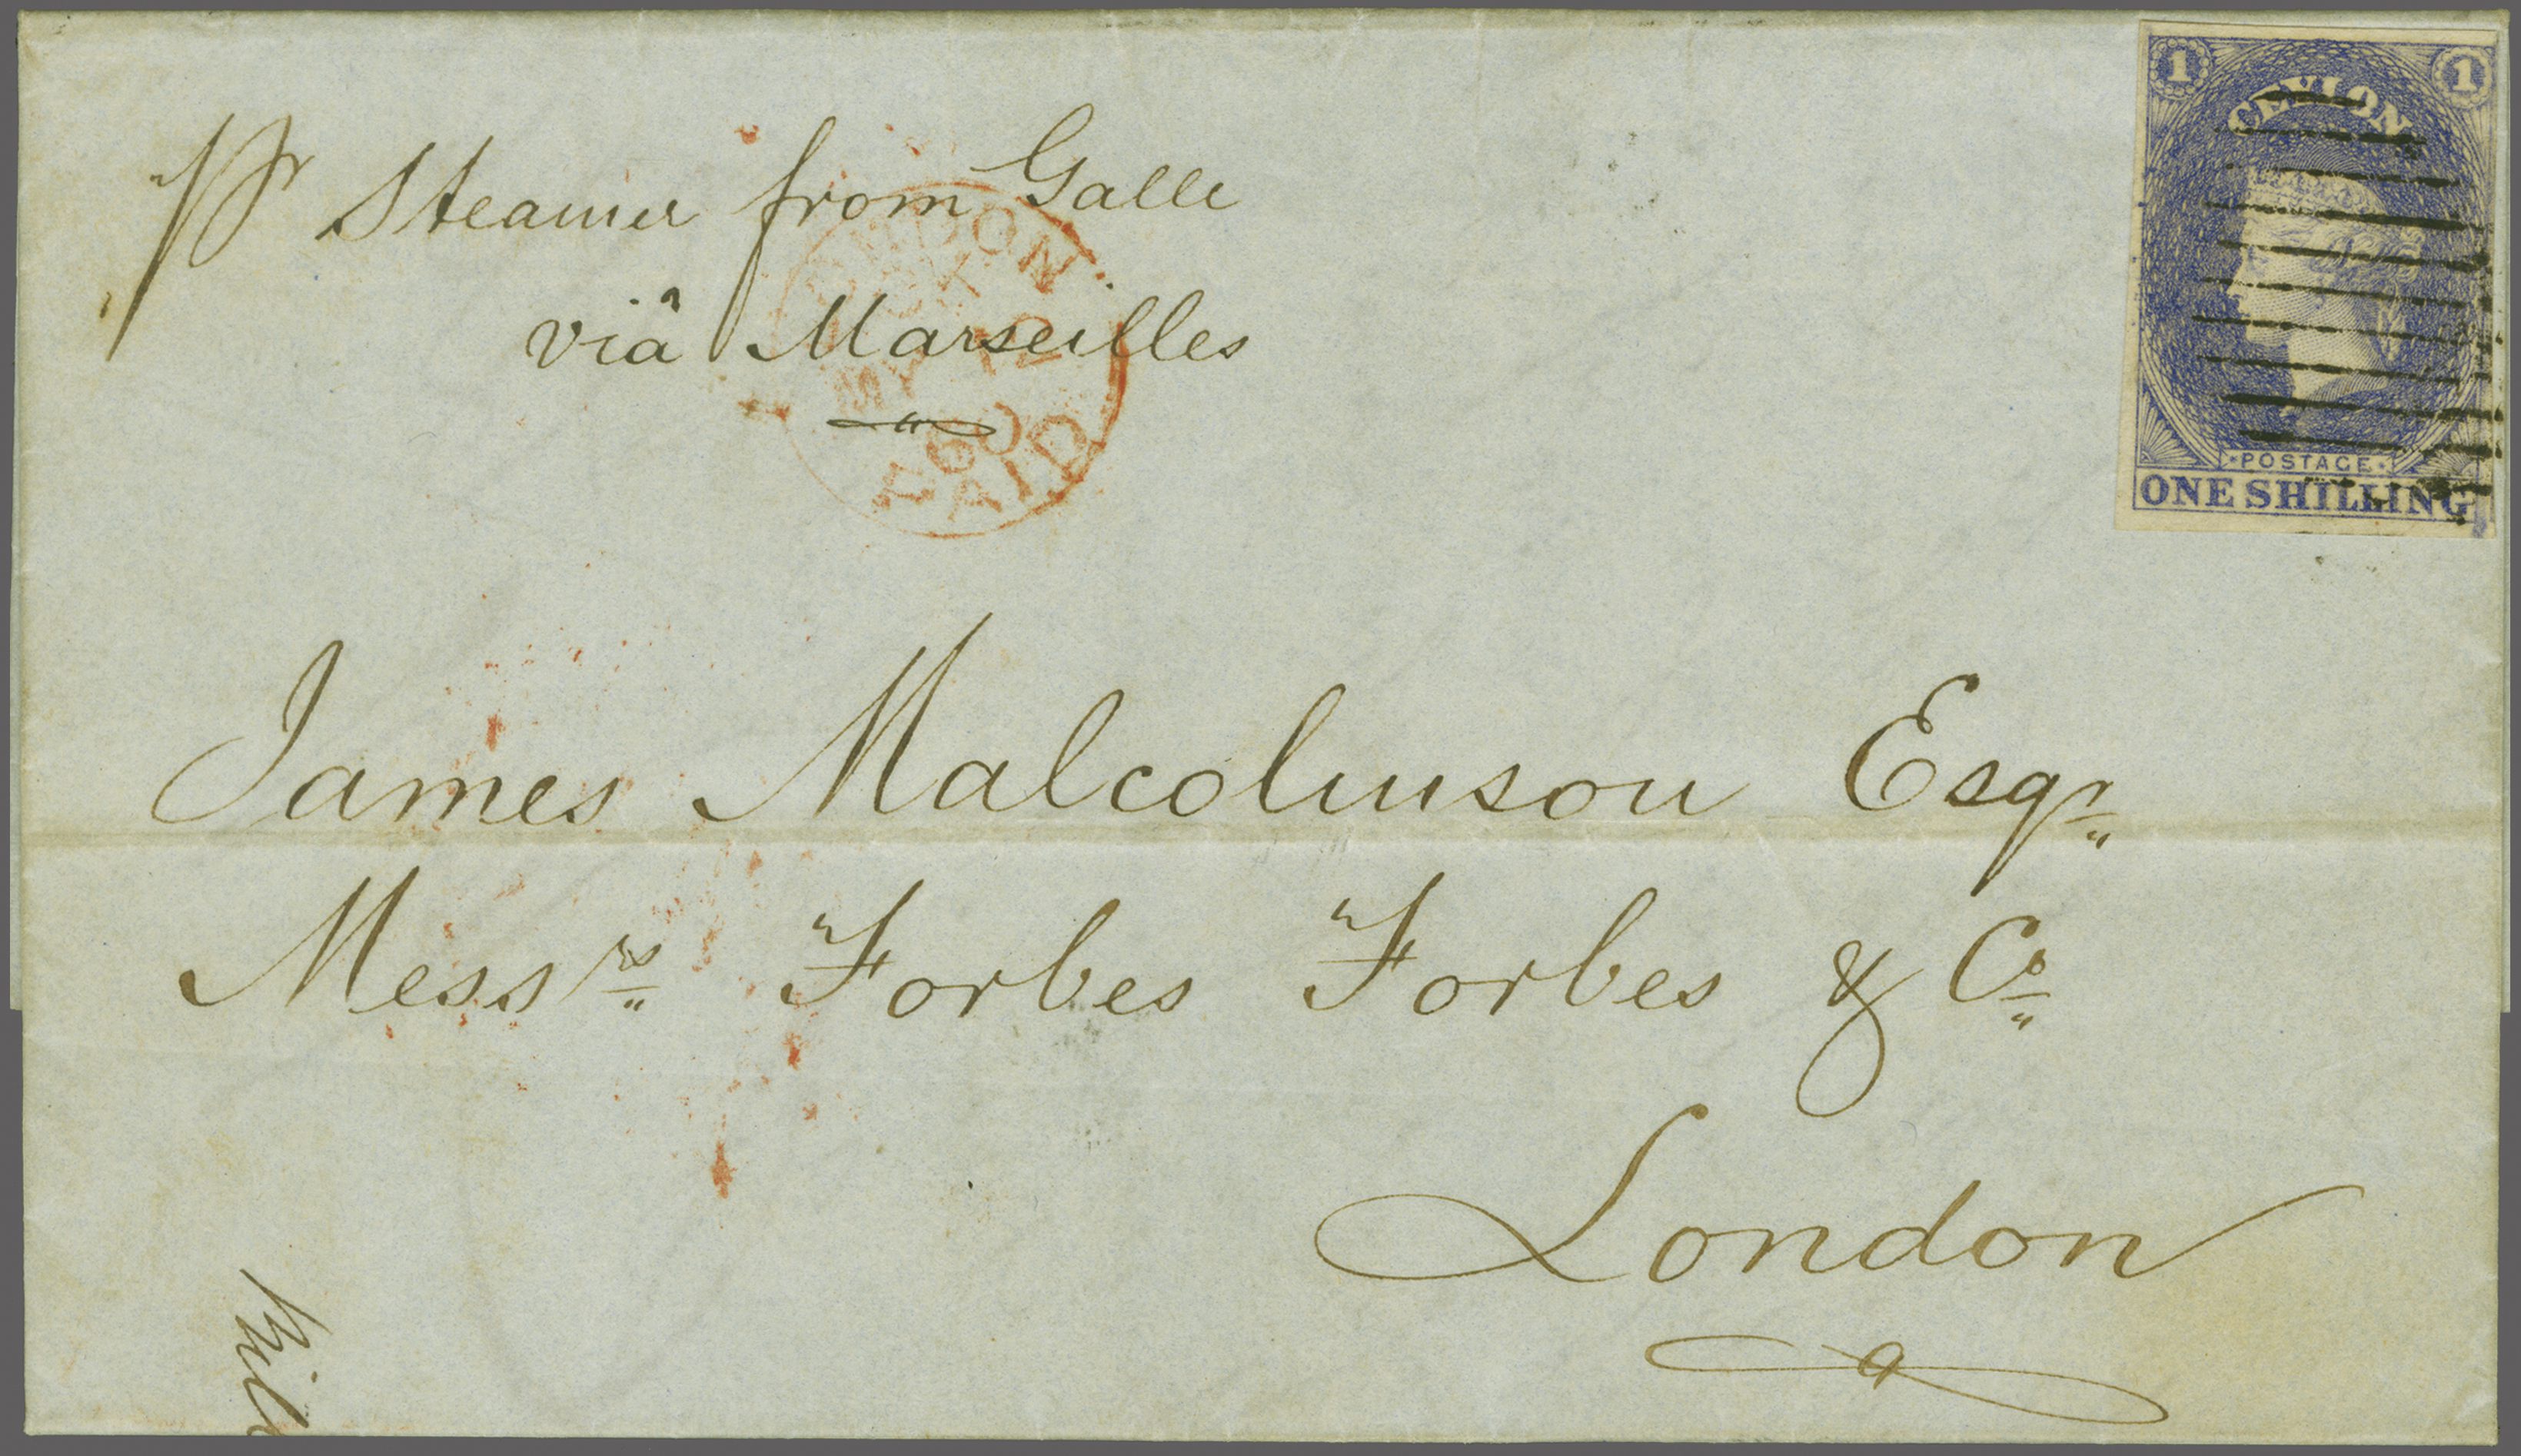 pr Steamer from Galle
viâ Marseilles
LONDON
MY 12
60
PAID
1 1
CEYLON
POSTAGE
ONE SHILLING
James Malcolmson Esqr
Messrs Forbes Forbes & Co
London